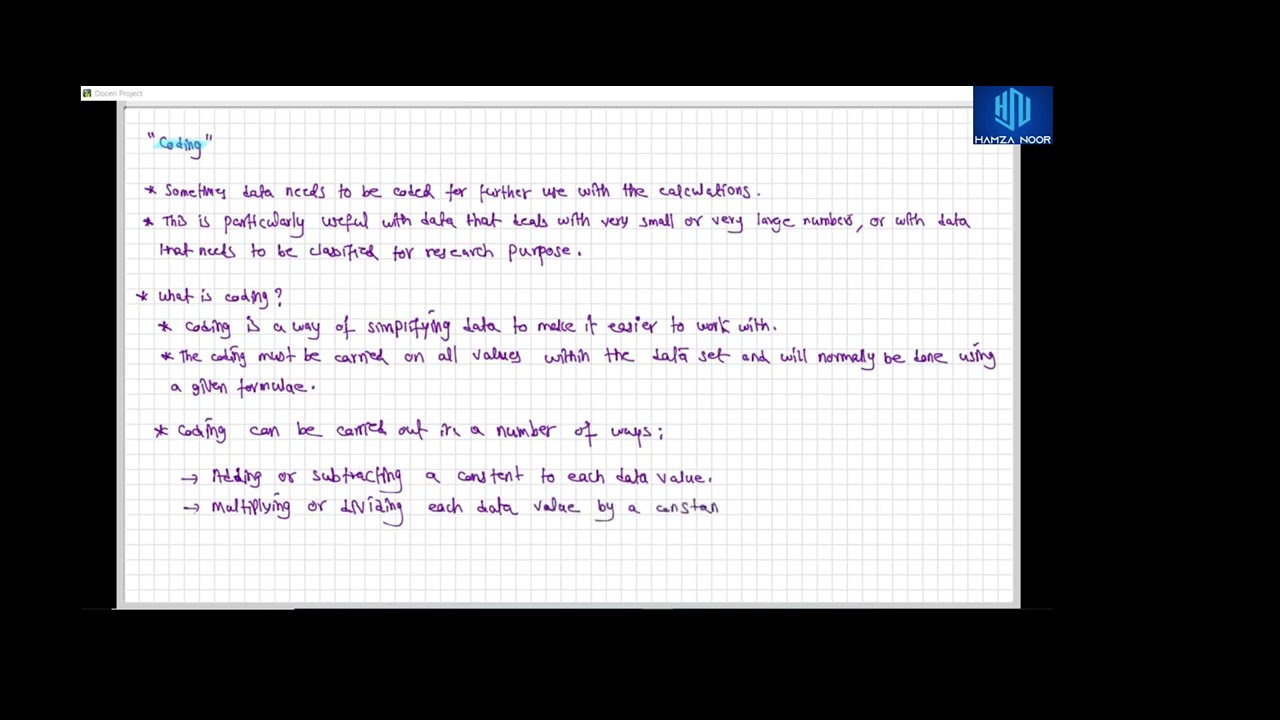 Doceri Project
HAMZA NOOR
"Coding"
* Sometimes data needs to be coded for further use with the calculations.
* This is particularly useful with data that deals with very small or very large numbers, or with data
that needs to be classified for research purpose.
* What is coding?
* Coding is a way of simplifying data to make it easier to work with.
* The coding must be carried on all values within the data set and will normally be done using
a given formulae.
* Coding can be carried out in a number of ways:
→ Adding or subtracting a constant to each data value.
→ Multiplying or dividing each data value by a constan